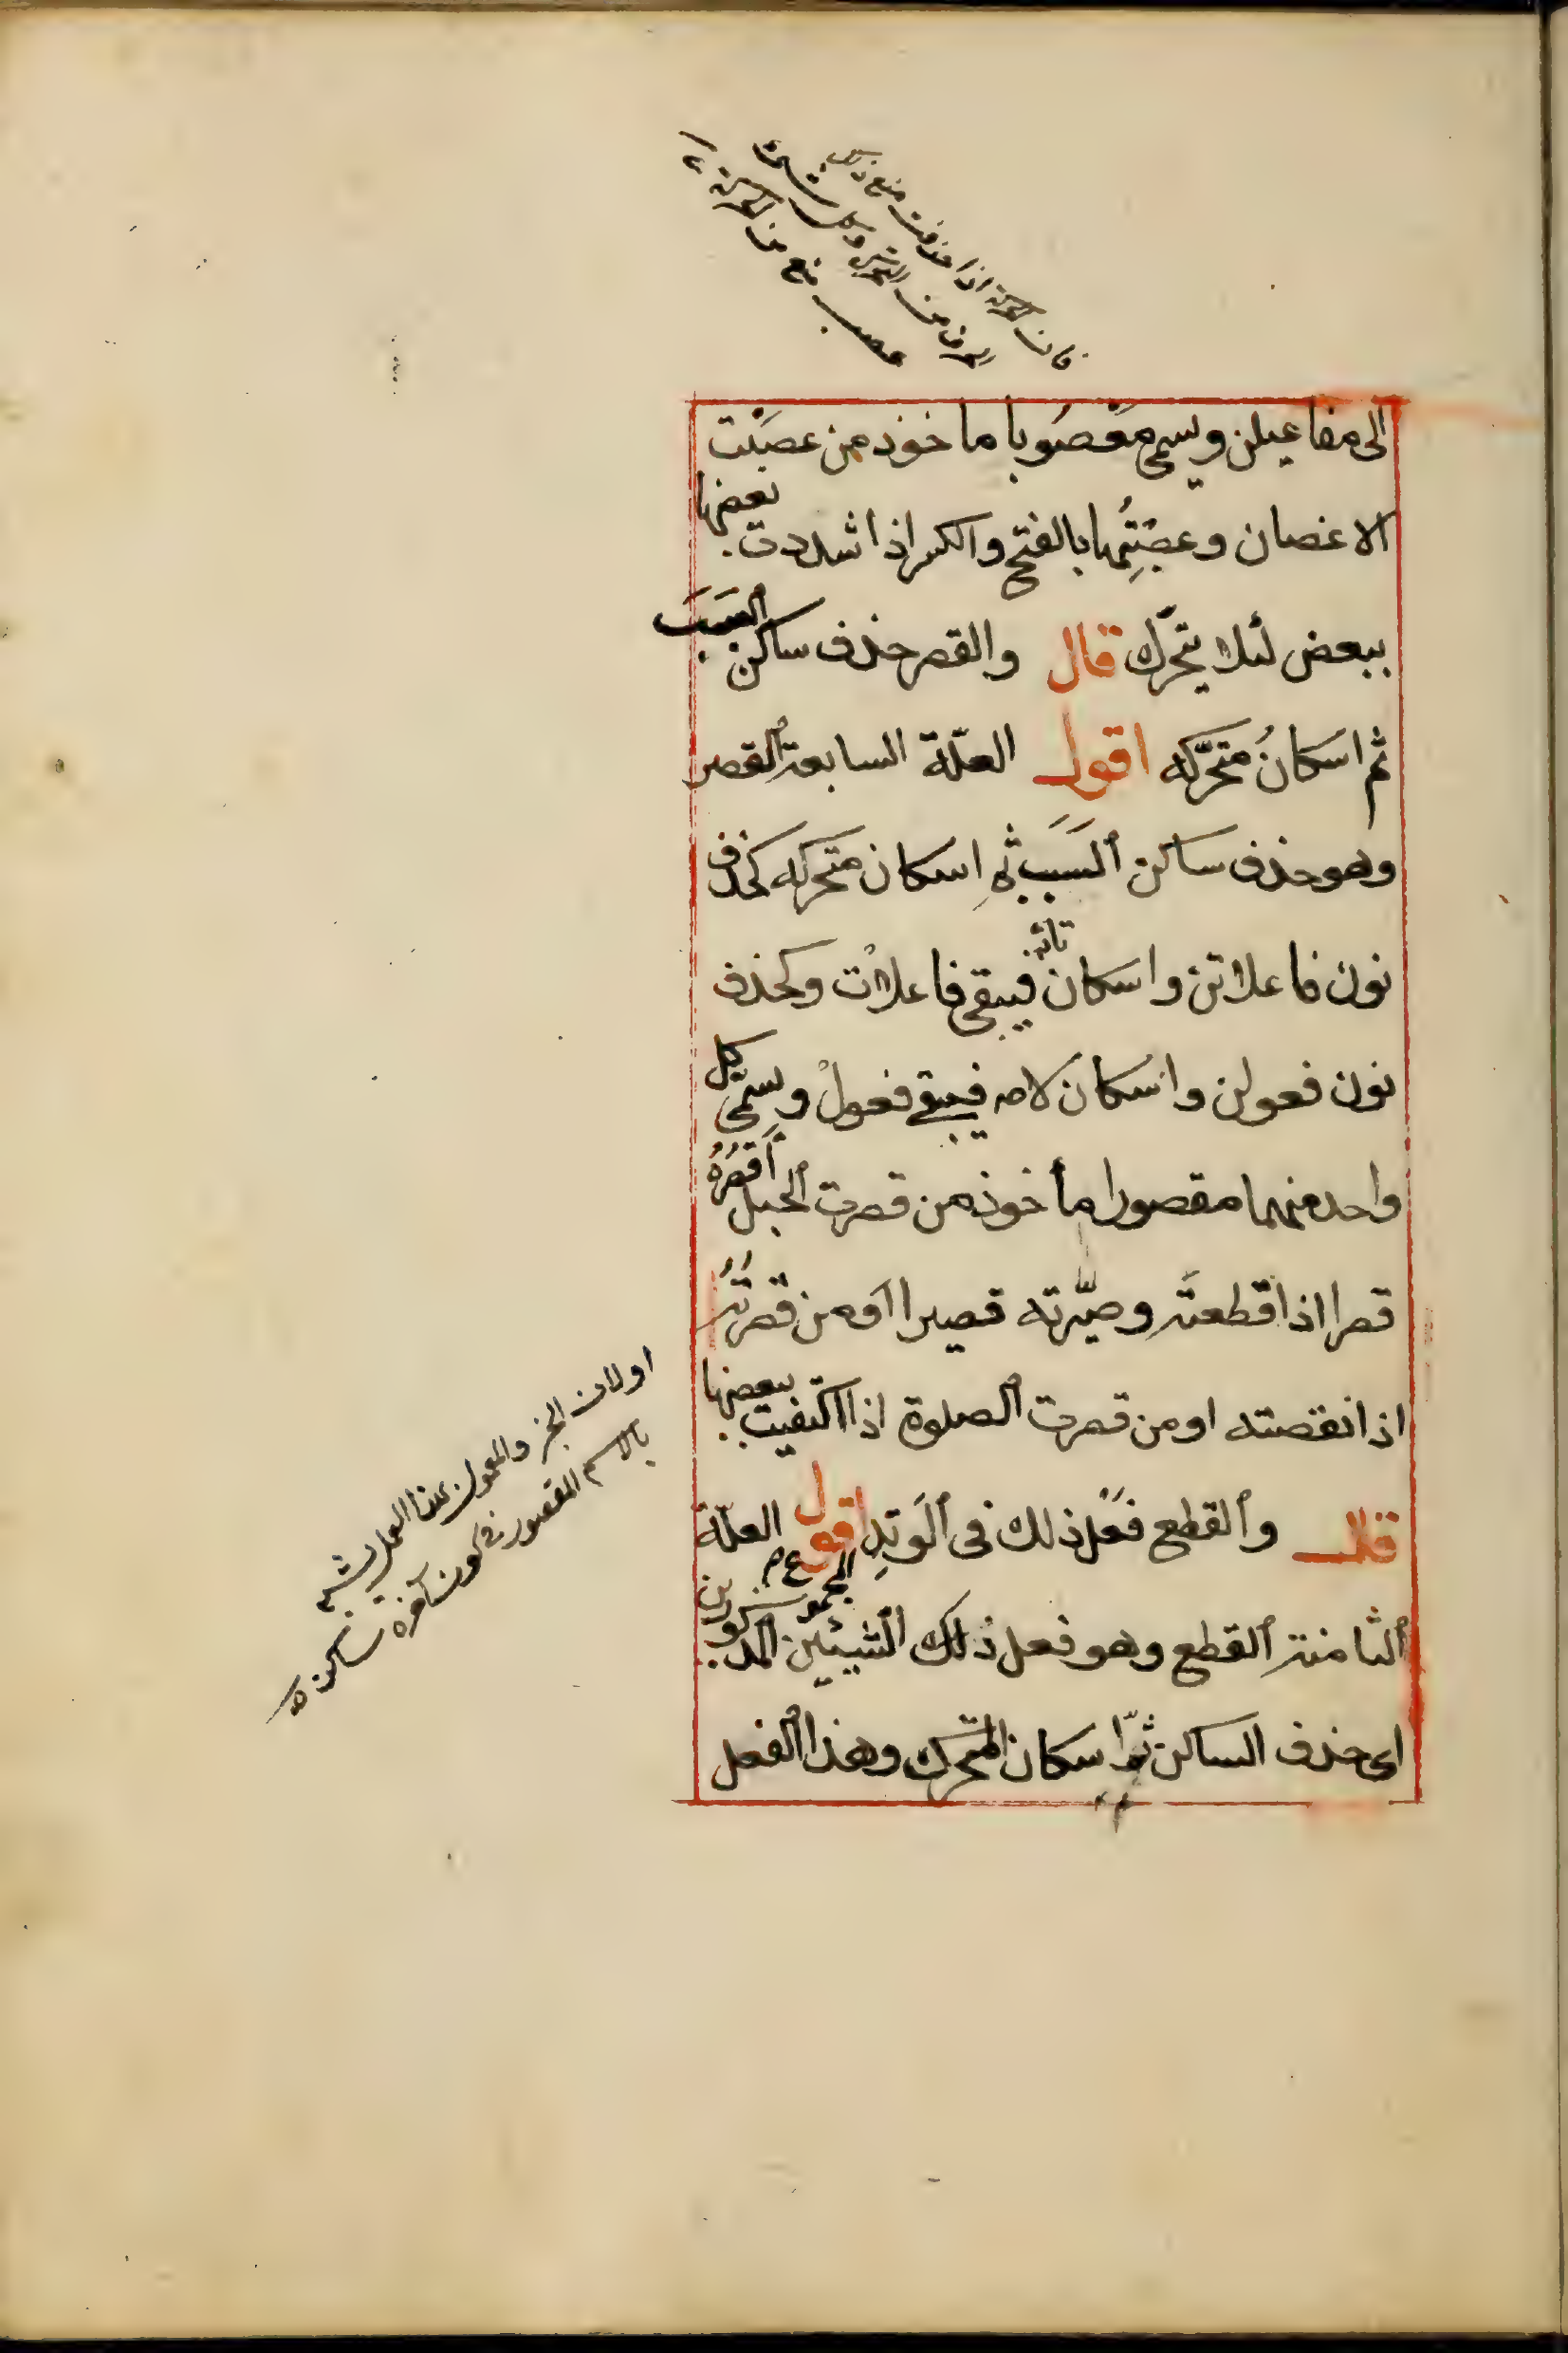 فان الحركة اذا حذفت منع ذلك
الحرف من التحرك وكل شئ
عصب منع من الحركة
الى مفاعيلن ويسمى مَعْصُوبا ماخوذ من عصَبْت
الاغصان وعصَبْتُها بالفتح والكسر اذا شددت بعضها
ببعض لئلا يتحّرك قال والقصر حذف ساكن السبَبَ
ثم اسكانُ متحرّكه اقول العلّة السابعة القصر
وهو حذف ساكن السَبَب ثم اسكان متحركه كحذف
نون فاعلاتن واسكان تائه فيبقى فاعلاتْ وكحذف
نون فعولن واسكان لامه فيبقى فعولْ ويسمّى كل
واحد منهما مقصورا مأخوذ من قصرت الحبل اَقصُرُهُ
قصرا اذا قطعته وصيّرته قصيرا اَو من قصرتُه
اذا نقصته او من قصرت الصلوة اذا اكتفيت ببعضها
قال والقطع فعْل ذلك فى اَلوَتِدِ المجموع اقول العلّة
الثامنة القطع وهو فعل ذلك الشيئين المذكورين
اى حذف الساكن ثمّ اسكان المتحرّك وهذا الفعل
او لان الجزء المعمول هذا العمل يشبه
بالاسم المقصور فى كون آخره ساكن